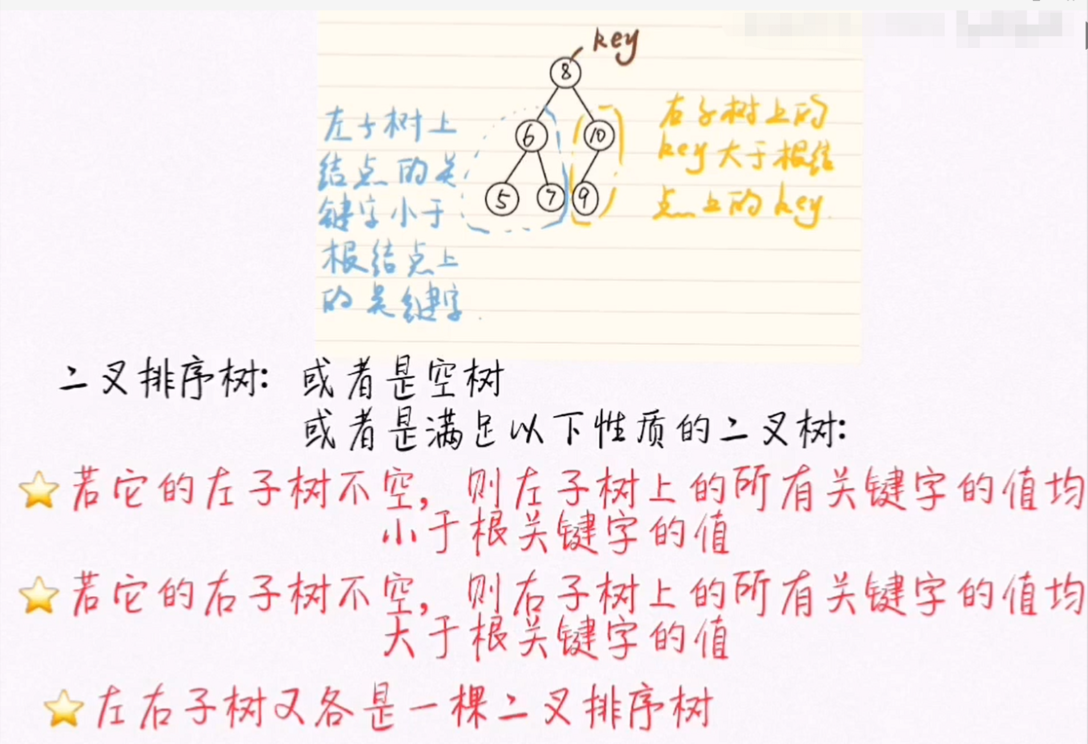 key
8
左子树上
结点的关
键字小于
根结点上
的关键字.
6
10
5
7
9
右子树上的
key大于根结
点上的key.
二叉排序树: 或者是空树
或者是满足以下性质的二叉树:
若它的左子树不空, 则左子树上的所有关键字的值均
小于根关键字的值
若它的右子树不空, 则右子树上的所有关键字的值均
大于根关键字的值
左右子树又各是一棵二叉排序树